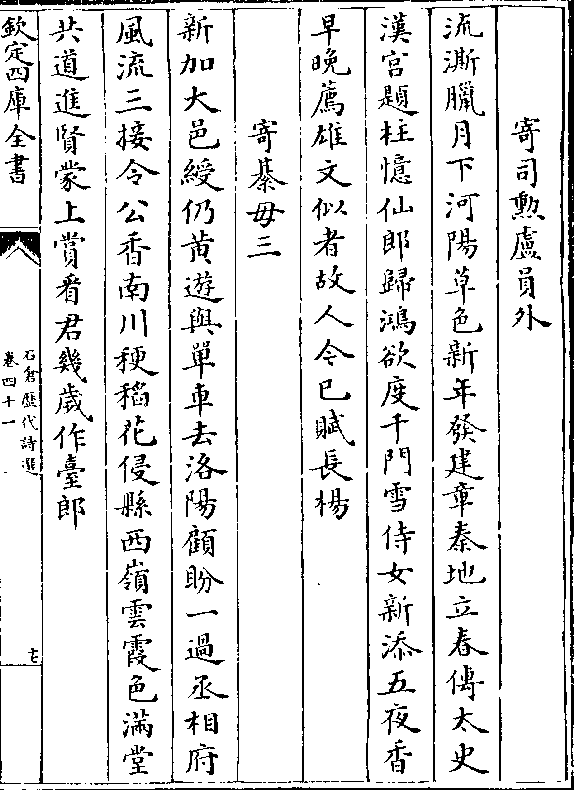 寄司勲盧員外
流澌臘月下河陽草色新年發建章秦地立春傳太史
漢宮題柱憶仙郎歸鴻欲度千門雪侍女新添五夜香
早晚薦雄文似者故人今已賦長楊
寄綦毋三
新加大邑綬仍黄遊與單車去洛陽顧盼一過丞相府
風流三接令公香南川稉稻花侵縣西嶺雲霞色滿堂
共道進賢蒙上賞看君幾歲作臺郎
欽定四庫全書
石倉歷代詩選
卷四十一
十七